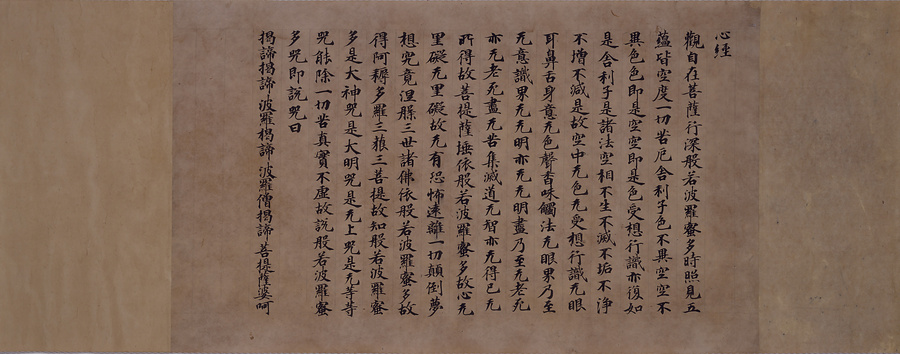 心经
觀自在菩薩行深般若波羅蜜多時照見五
蘊皆空度一切苦厄舍利子色不異空空不
異色色即是空空即是色受想行識亦復如
是舍利子是諸法空相不生不滅不垢不淨
不增不減是故空中无色无受想行識无眼
耳鼻舌身意无色聲香味觸法无眼界乃至
无意識界无无明亦无无明盡乃至无老死
亦无老死盡无苦集滅道无智亦无得已无
所得故菩提薩埵依般若波羅蜜多故心无
罣礙无罣礙故无有恐怖遠離一切顛倒夢
想究竟涅槃三世諸佛依般若波羅蜜多故
得阿耨多羅三藐三菩提故知般若波羅蜜
多是大神咒是大明咒是无上咒是无等等
咒能除一切苦真實不虛故說般若波羅蜜
多咒即說咒曰
揭諦揭諦波羅揭諦波羅僧揭諦菩提薩婆呵